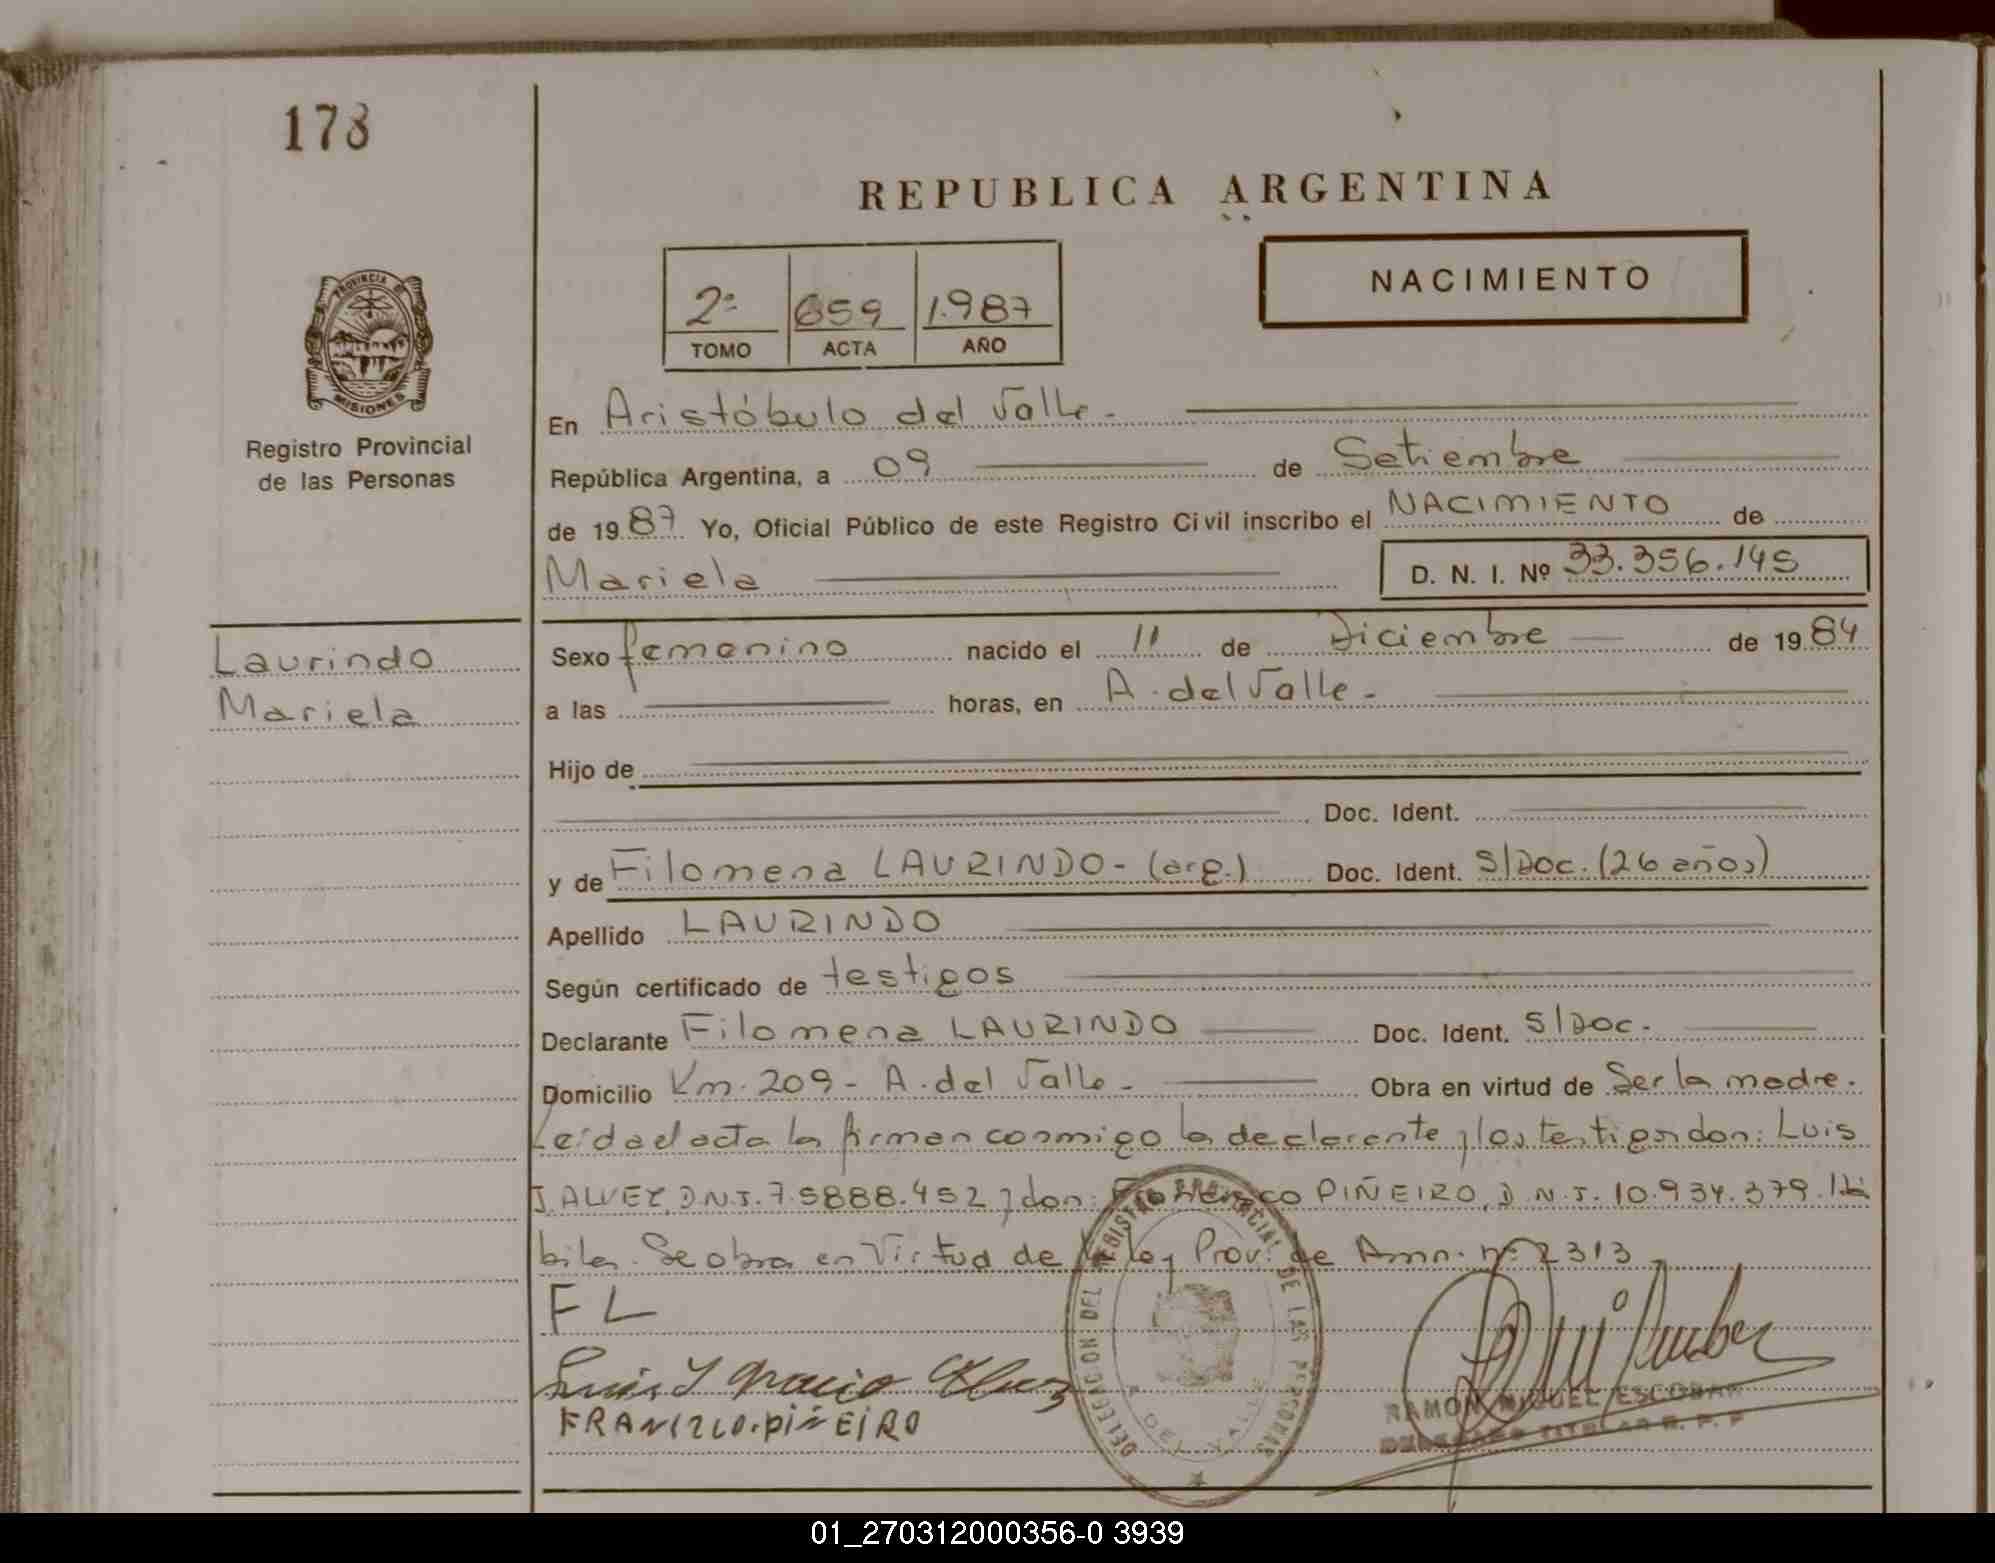 178
REPUBLICA ARGENTINA
NACIMIENTO
2º 659 1.987
TOMO ACTA AÑO
PROVINCIA DE
MISIONES
Registro Provincial
de las Personas
En Aristóbulo del Valle.
República Argentina, a 09 de Setiembre
de 1987 Yo, Oficial Público de este Registro Civil inscribo el NACIMIENTO de
Mariela D. N. I. Nº 33.356.145
Laurindo
Mariela
Sexo femenino nacido el 11 de Diciembre de 1984
a las horas, en A. del Valle.
Hijo de
Doc. Ident.
y de Filomena LAURINDO - (arg.) Doc. Ident. S/Doc. (26 años)
Apellido LAURINDO
Según certificado de testigos
Declarante Filomena LAURINDO Doc. Ident. S/Doc.
Domicilio Km. 209 - A. del Valle - Obra en virtud de Ser la madre.
Leída el acta la firman conmigo la declarante y los testigos don: Luis
I. ALVEZ, D.N.I. 7.5888.452 y don: PIÑEIRO, D.N.I. 10.934.379. Há
biles. Se obra en Virtud de la ley Prov. de Amn. nº 2313
F L
Luis Alvez
FRANCIZCO. PIÑEIRO
DELEGACION DEL REGISTRO PROVINCIAL DE LAS PERSONAS
A. DEL VALLE
RAMON MIGUEL ESCOBAR
TITULAR R. P. P.
01_270312000356-0 3939